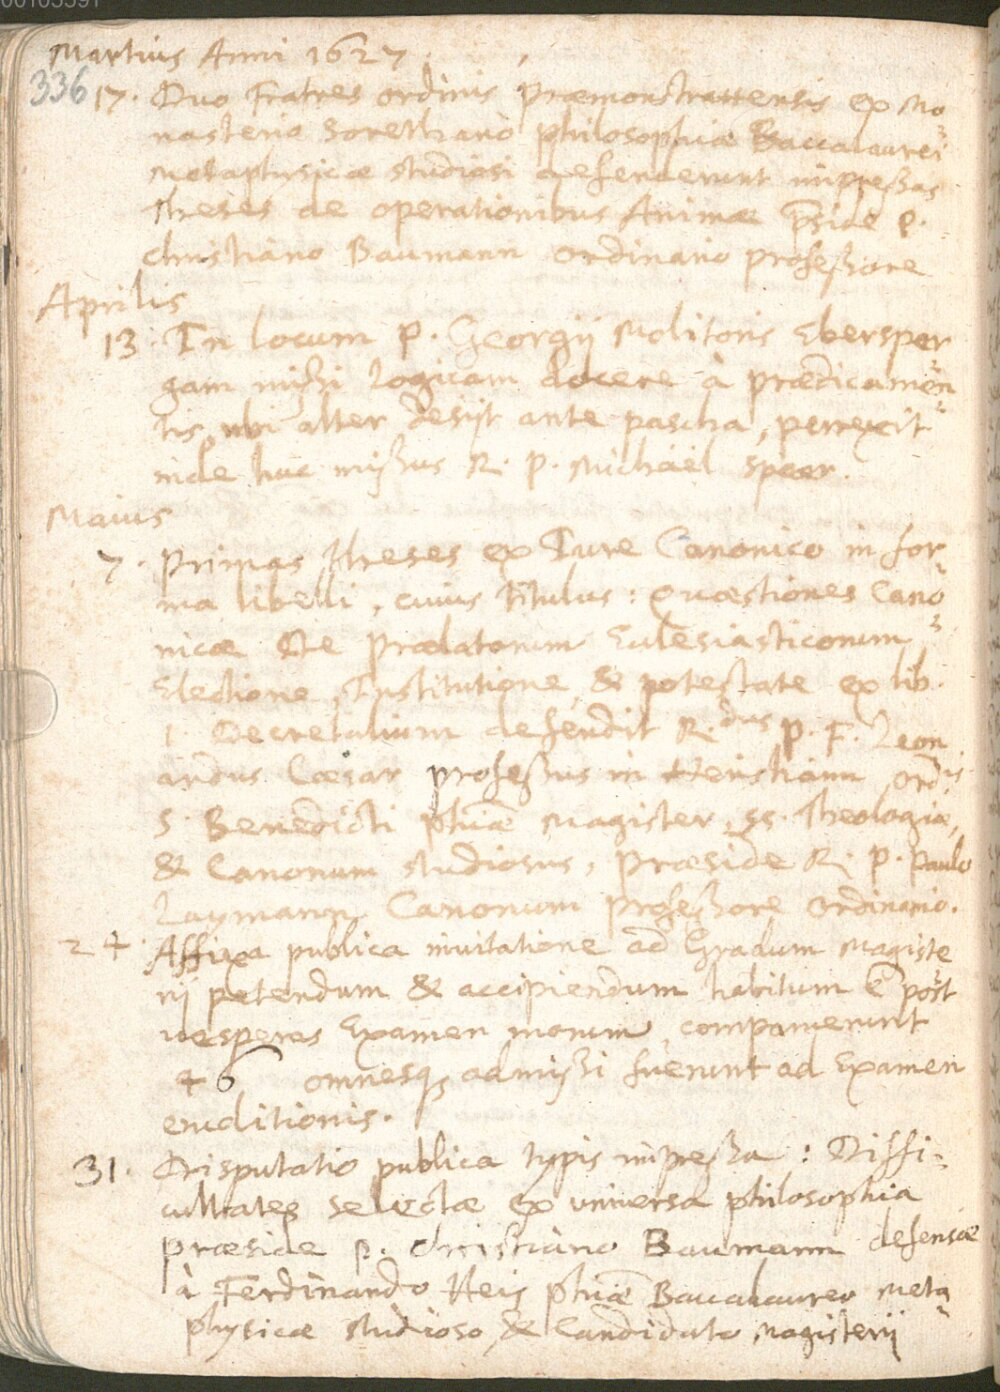 00103391
Martius Anni 1627.
336 17. Duo Fratres ordinis Præmonstratensis ex Mo
nasterio Sorethano philosophiæ Baccalaurei
Metaphysicæ studiosi defenderunt impressas
theses de operationibus Animæ p̄side P.
Christiano Baumann ordinario professore
Aprilis
13. In locum P. Georgij Molitoris Ebersper
gam missi Logicam docere à prædicamen
tis, ubi alter desijt ante pascha, perrexit
inde huc missus R. P. Michaël Speer.
Maius
7. Primas theses ex Iure Canonico in for
ma libelli, cuius titulus: Quæstiones Cano
nicæ De Prælatorum Ecclesiasticorum
Electione, Institutione, & potestate ex lib.
1. Decretalium defendit R.dus P. F. Leon
ardus Cæsar professus in ord̄is
S. Benedicti phiæ Magister, SS. Theologiæ,
& Canonum studiosus, Præside R. P. Paulo
Laymann Canonum professore ordinario.
24. Affixa publica invitatione ad Gradum Magiste
rij petendum & accipiendum habitum ē post
vesperas Examen morum, comparuerunt
46 omnesq; admissi fuerunt ad Examen
eruditionis.
31. Disputatio publica typis impressa: Diffi-
cultates selectæ ex universa philosophia
præside P. Christiano Baumann defensæ
à Ferdinando Heis phiæ Baccalaureo Meta
physicæ studioso & Candidato Magisterij